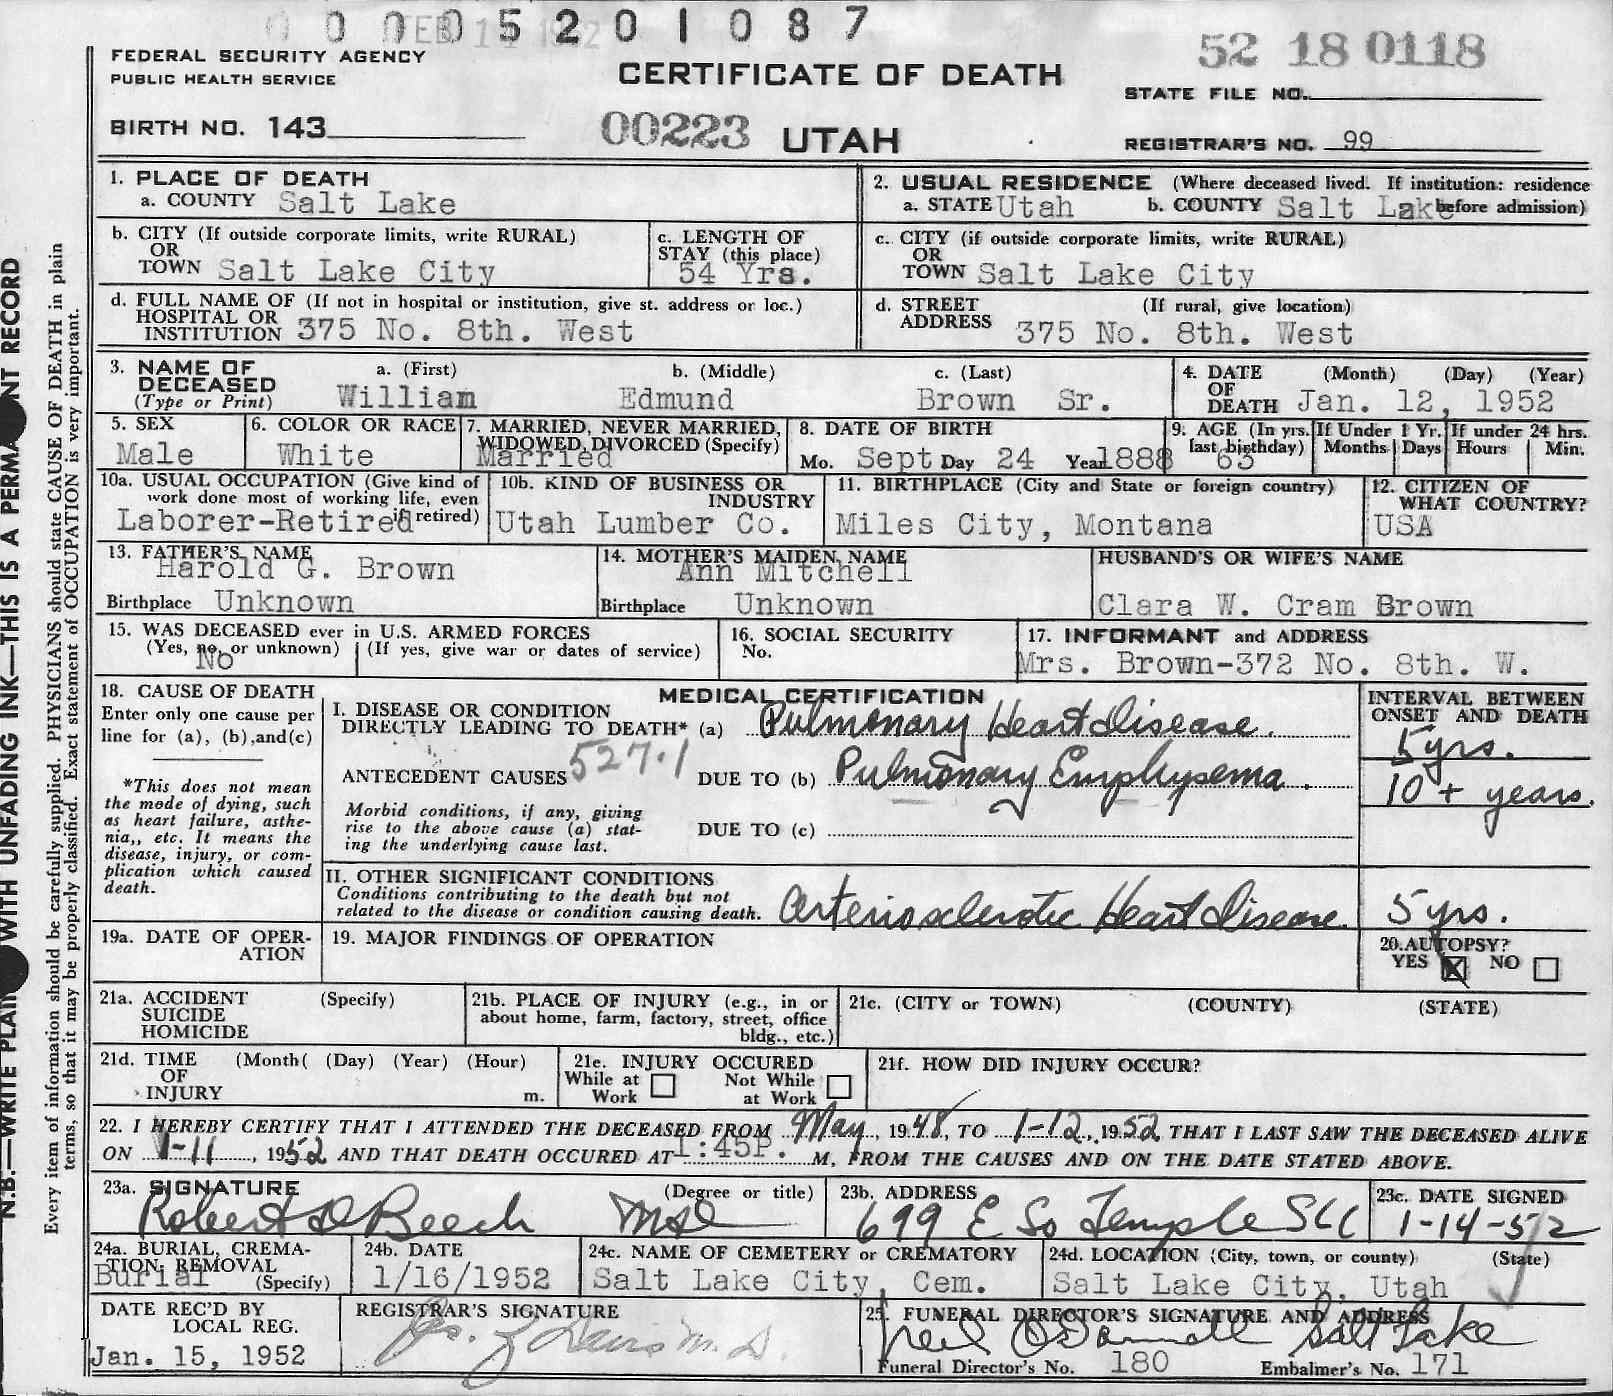 0 0 0 0 5 2 0 1 0 8 7
FEDERAL SECURITY AGENCY
PUBLIC HEALTH SERVICE
CERTIFICATE OF DEATH
52 18 0118
STATE FILE NO.
BIRTH NO. 143
00223 UTAH
REGISTRAR'S NO. 99
1. PLACE OF DEATH
a. COUNTY Salt Lake
2. USUAL RESIDENCE (Where deceased lived. If institution: residence before admission)
a. STATE Utah b. COUNTY Salt Lake
b. CITY (If outside corporate limits, write RURAL)
OR
TOWN Salt Lake City
c. LENGTH OF
STAY (this place)
54 Yrs.
c. CITY (if outside corporate limits, write RURAL)
OR
TOWN Salt Lake City
d. FULL NAME OF (If not in hospital or institution, give st. address or loc.)
HOSPITAL OR
INSTITUTION 375 No. 8th. West
d. STREET (If rural, give location)
ADDRESS 375 No. 8th. West
3. NAME OF
DECEASED
(Type or Print)
a. (First) b. (Middle) c. (Last)
William Edmund Brown Sr.
4. DATE (Month) (Day) (Year)
OF
DEATH Jan. 12, 1952
5. SEX
Male
6. COLOR OR RACE
White
7. MARRIED, NEVER MARRIED,
WIDOWED, DIVORCED (Specify)
Married
8. DATE OF BIRTH
Mo. Sept Day 24 Year 1888
9. AGE (In yrs. last birthday)
63
If Under 1 Yr.
Months Days
If under 24 hrs.
Hours Min.
10a. USUAL OCCUPATION (Give kind of
work done most of working life, even
if retired)
Laborer-Retired
10b. KIND OF BUSINESS OR
INDUSTRY
Utah Lumber Co.
11. BIRTHPLACE (City and State or foreign country)
Miles City, Montana
12. CITIZEN OF
WHAT COUNTRY?
USA
13. FATHER'S NAME
Harold G. Brown
Birthplace Unknown
14. MOTHER'S MAIDEN NAME
Ann Mitchell
Birthplace Unknown
HUSBAND'S OR WIFE'S NAME
Clara W. Cram Brown
15. WAS DECEASED ever in U.S. ARMED FORCES
(Yes, no, or unknown) (If yes, give war or dates of service)
No
16. SOCIAL SECURITY
No.
17. INFORMANT and ADDRESS
Mrs. Brown-372 No. 8th. W.
18. CAUSE OF DEATH
Enter only one cause per
line for (a), (b),and(c)
*This does not mean
the mode of dying, such
as heart failure, asthe-
nia,, etc. It means the
disease, injury, or com-
plication which caused
death.
MEDICAL CERTIFICATION
I. DISEASE OR CONDITION
DIRECTLY LEADING TO DEATH* (a) Pulmonary Heart Disease.
ANTECEDENT CAUSES 527.1 DUE TO (b) Pulmonary Emphysema.
Morbid conditions, if any, giving
rise to the above cause (a) stat-
ing the underlying cause last.
DUE TO (c)
INTERVAL BETWEEN
ONSET AND DEATH
5 yrs.
10 + years.
II. OTHER SIGNIFICANT CONDITIONS
Conditions contributing to the death but not
related to the disease or condition causing death. Arteriosclerotic Heart Disease.
5 yrs.
19a. DATE OF OPER-
ATION
19. MAJOR FINDINGS OF OPERATION
20. AUTOPSY?
YES X NO
21a. ACCIDENT (Specify)
SUICIDE
HOMICIDE
21b. PLACE OF INJURY (e.g., in or
about home, farm, factory, street, office
bldg., etc.)
21c. (CITY or TOWN) (COUNTY) (STATE)
21d. TIME (Month( (Day) (Year) (Hour)
OF
INJURY m.
21e. INJURY OCCURED
While at Work Not While at Work
21f. HOW DID INJURY OCCUR?
22. I HEREBY CERTIFY THAT I ATTENDED THE DECEASED FROM May, 1948, TO 1-12, 1952 THAT I LAST SAW THE DECEASED ALIVE
ON 1-11, 1952 AND THAT DEATH OCCURED AT 1:45P. M, FROM THE CAUSES AND ON THE DATE STATED ABOVE.
23a. SIGNATURE (Degree or title)
Robert D Beech
23b. ADDRESS
699 E So Temple SLC
23c. DATE SIGNED
1-14-52
24a. BURIAL, CREMA-
TION, REMOVAL
(Specify)
Burial
24b. DATE
1/16/1952
24c. NAME OF CEMETERY or CREMATORY
Salt Lake City, Cem.
24d. LOCATION (City, town, or county) (State)
Salt Lake City, Utah
DATE REC'D BY
LOCAL REG.
Jan. 15, 1952
REGISTRAR'S SIGNATURE
25. FUNERAL DIRECTOR'S SIGNATURE AND ADDRESS
Neil O'Donnell Salt Lake
Funeral Director's No. 180 Embalmer's No. 171
N.B.—WRITE PLAINLY WITH UNFADING INK—THIS IS A PERMANENT RECORD
Every item of information should be carefully supplied. PHYSICIANS should state CAUSE OF DEATH in plain
terms, so that it may be properly classified. Exact statement of OCCUPATION is very important.